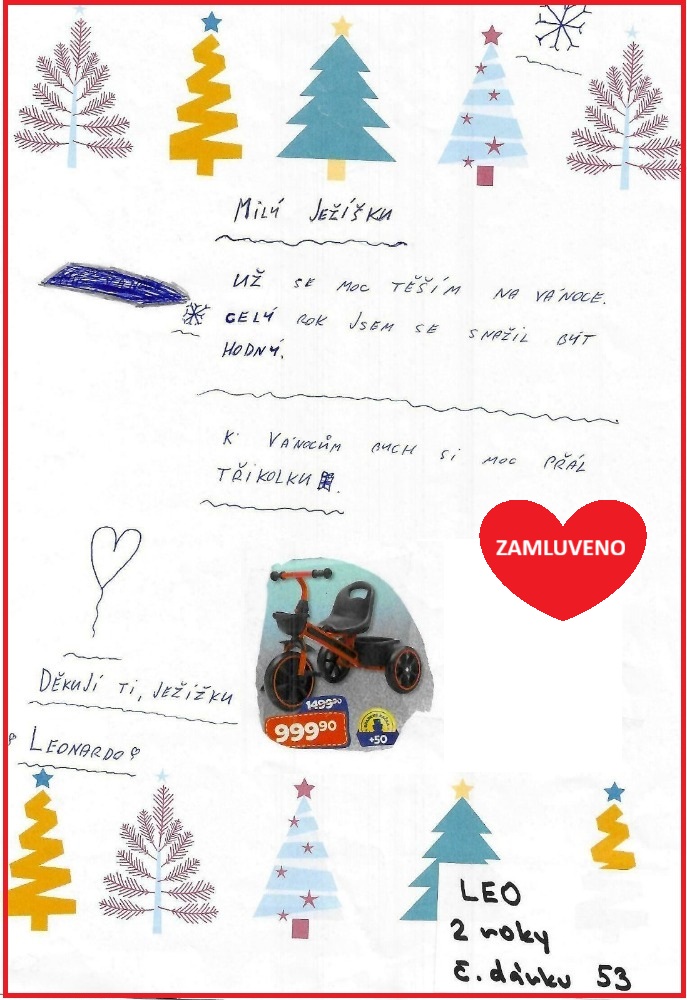 MILÝ JEŽÍŠKU
UŽ SE MOC TĚŠÍM NA VÁNOCE.
CELÝ ROK JSEM SE SNAŽIL BÝT
HODNÝ.
K VÁNOCŮM BYCH SI MOC PŘÁL
TŘÍKOLKU.
ZAMLUVENO
1499⁹⁰
999⁹⁰
+50
DĚKUJI TI, JEŽÍŽKU
LEONARDO
LEO
2 roky
č. dárku 53